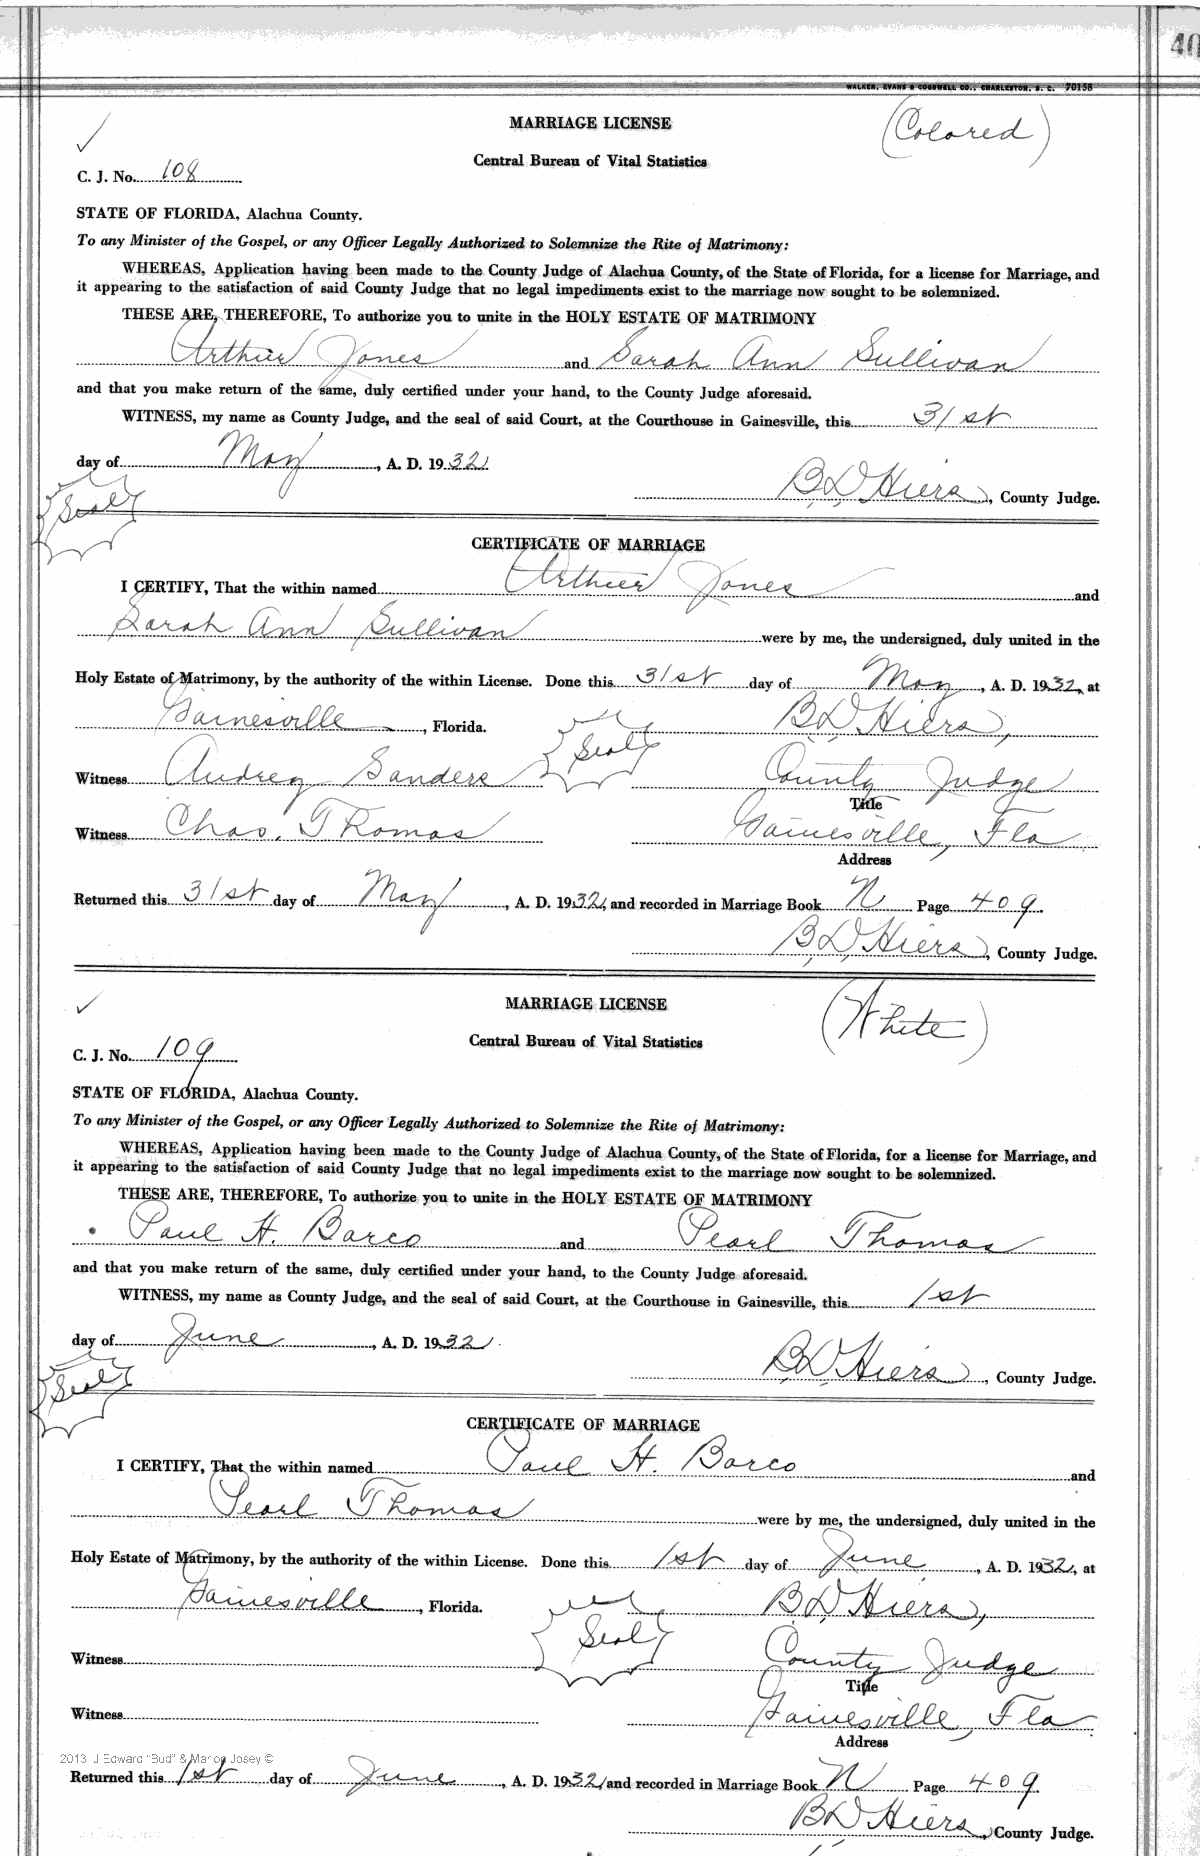 40
WALKER, EVANS & COGSWELL CO., CHARLESTON, S. C. 70158
MARRIAGE LICENSE
(Colored)
Central Bureau of Vital Statistics
C. J. No. 108
STATE OF FLORIDA, Alachua County.
To any Minister of the Gospel, or any Officer Legally Authorized to Solemnize the Rite of Matrimony:
WHEREAS, Application having been made to the County Judge of Alachua County, of the State of Florida, for a license for Marriage, and
it appearing to the satisfaction of said County Judge that no legal impediments exist to the marriage now sought to be solemnized.
THESE ARE, THEREFORE, To authorize you to unite in the HOLY ESTATE OF MATRIMONY
Arthur Jones and Sarah Ann Sullivan
and that you make return of the same, duly certified under your hand, to the County Judge aforesaid.
WITNESS, my name as County Judge, and the seal of said Court, at the Courthouse in Gainesville, this 31st
day of May, A. D. 1932.
B. D. Hiers, County Judge.
Seal
CERTIFICATE OF MARRIAGE
I CERTIFY, That the within named Arthur Jones and
Sarah Ann Sullivan were by me, the undersigned, duly united in the
Holy Estate of Matrimony, by the authority of the within License. Done this 31st day of May, A. D. 1932, at
Gainesville, Florida. B. D. Hiers,
Seal
Witness Audrey Sanders County Judge
Title
Witness Chas. Thomas Gainesville, Fla
Address
Returned this 31st day of May, A. D. 1932, and recorded in Marriage Book N Page 409.
B. D. Hiers, County Judge.
MARRIAGE LICENSE
(White)
Central Bureau of Vital Statistics
C. J. No. 109
STATE OF FLORIDA, Alachua County.
To any Minister of the Gospel, or any Officer Legally Authorized to Solemnize the Rite of Matrimony:
WHEREAS, Application having been made to the County Judge of Alachua County, of the State of Florida, for a license for Marriage, and
it appearing to the satisfaction of said County Judge that no legal impediments exist to the marriage now sought to be solemnized.
THESE ARE, THEREFORE, To authorize you to unite in the HOLY ESTATE OF MATRIMONY
Paul H. Barco and Pearl Thomas
and that you make return of the same, duly certified under your hand, to the County Judge aforesaid.
WITNESS, my name as County Judge, and the seal of said Court, at the Courthouse in Gainesville, this 1st
day of June, A. D. 1932.
B. D. Hiers, County Judge.
Seal
CERTIFICATE OF MARRIAGE
I CERTIFY, That the within named Paul H. Barco and
Pearl Thomas were by me, the undersigned, duly united in the
Holy Estate of Matrimony, by the authority of the within License. Done this 1st day of June, A. D. 1932, at
Gainesville, Florida. B. D. Hiers,
Seal
Witness County Judge
Title
Witness Gainesville, Fla.
Address
2013 J Edward "Bud" & Marion Josey ©
Returned this 1st day of June, A. D. 1932, and recorded in Marriage Book N Page 409.
B. D. Hiers, County Judge.